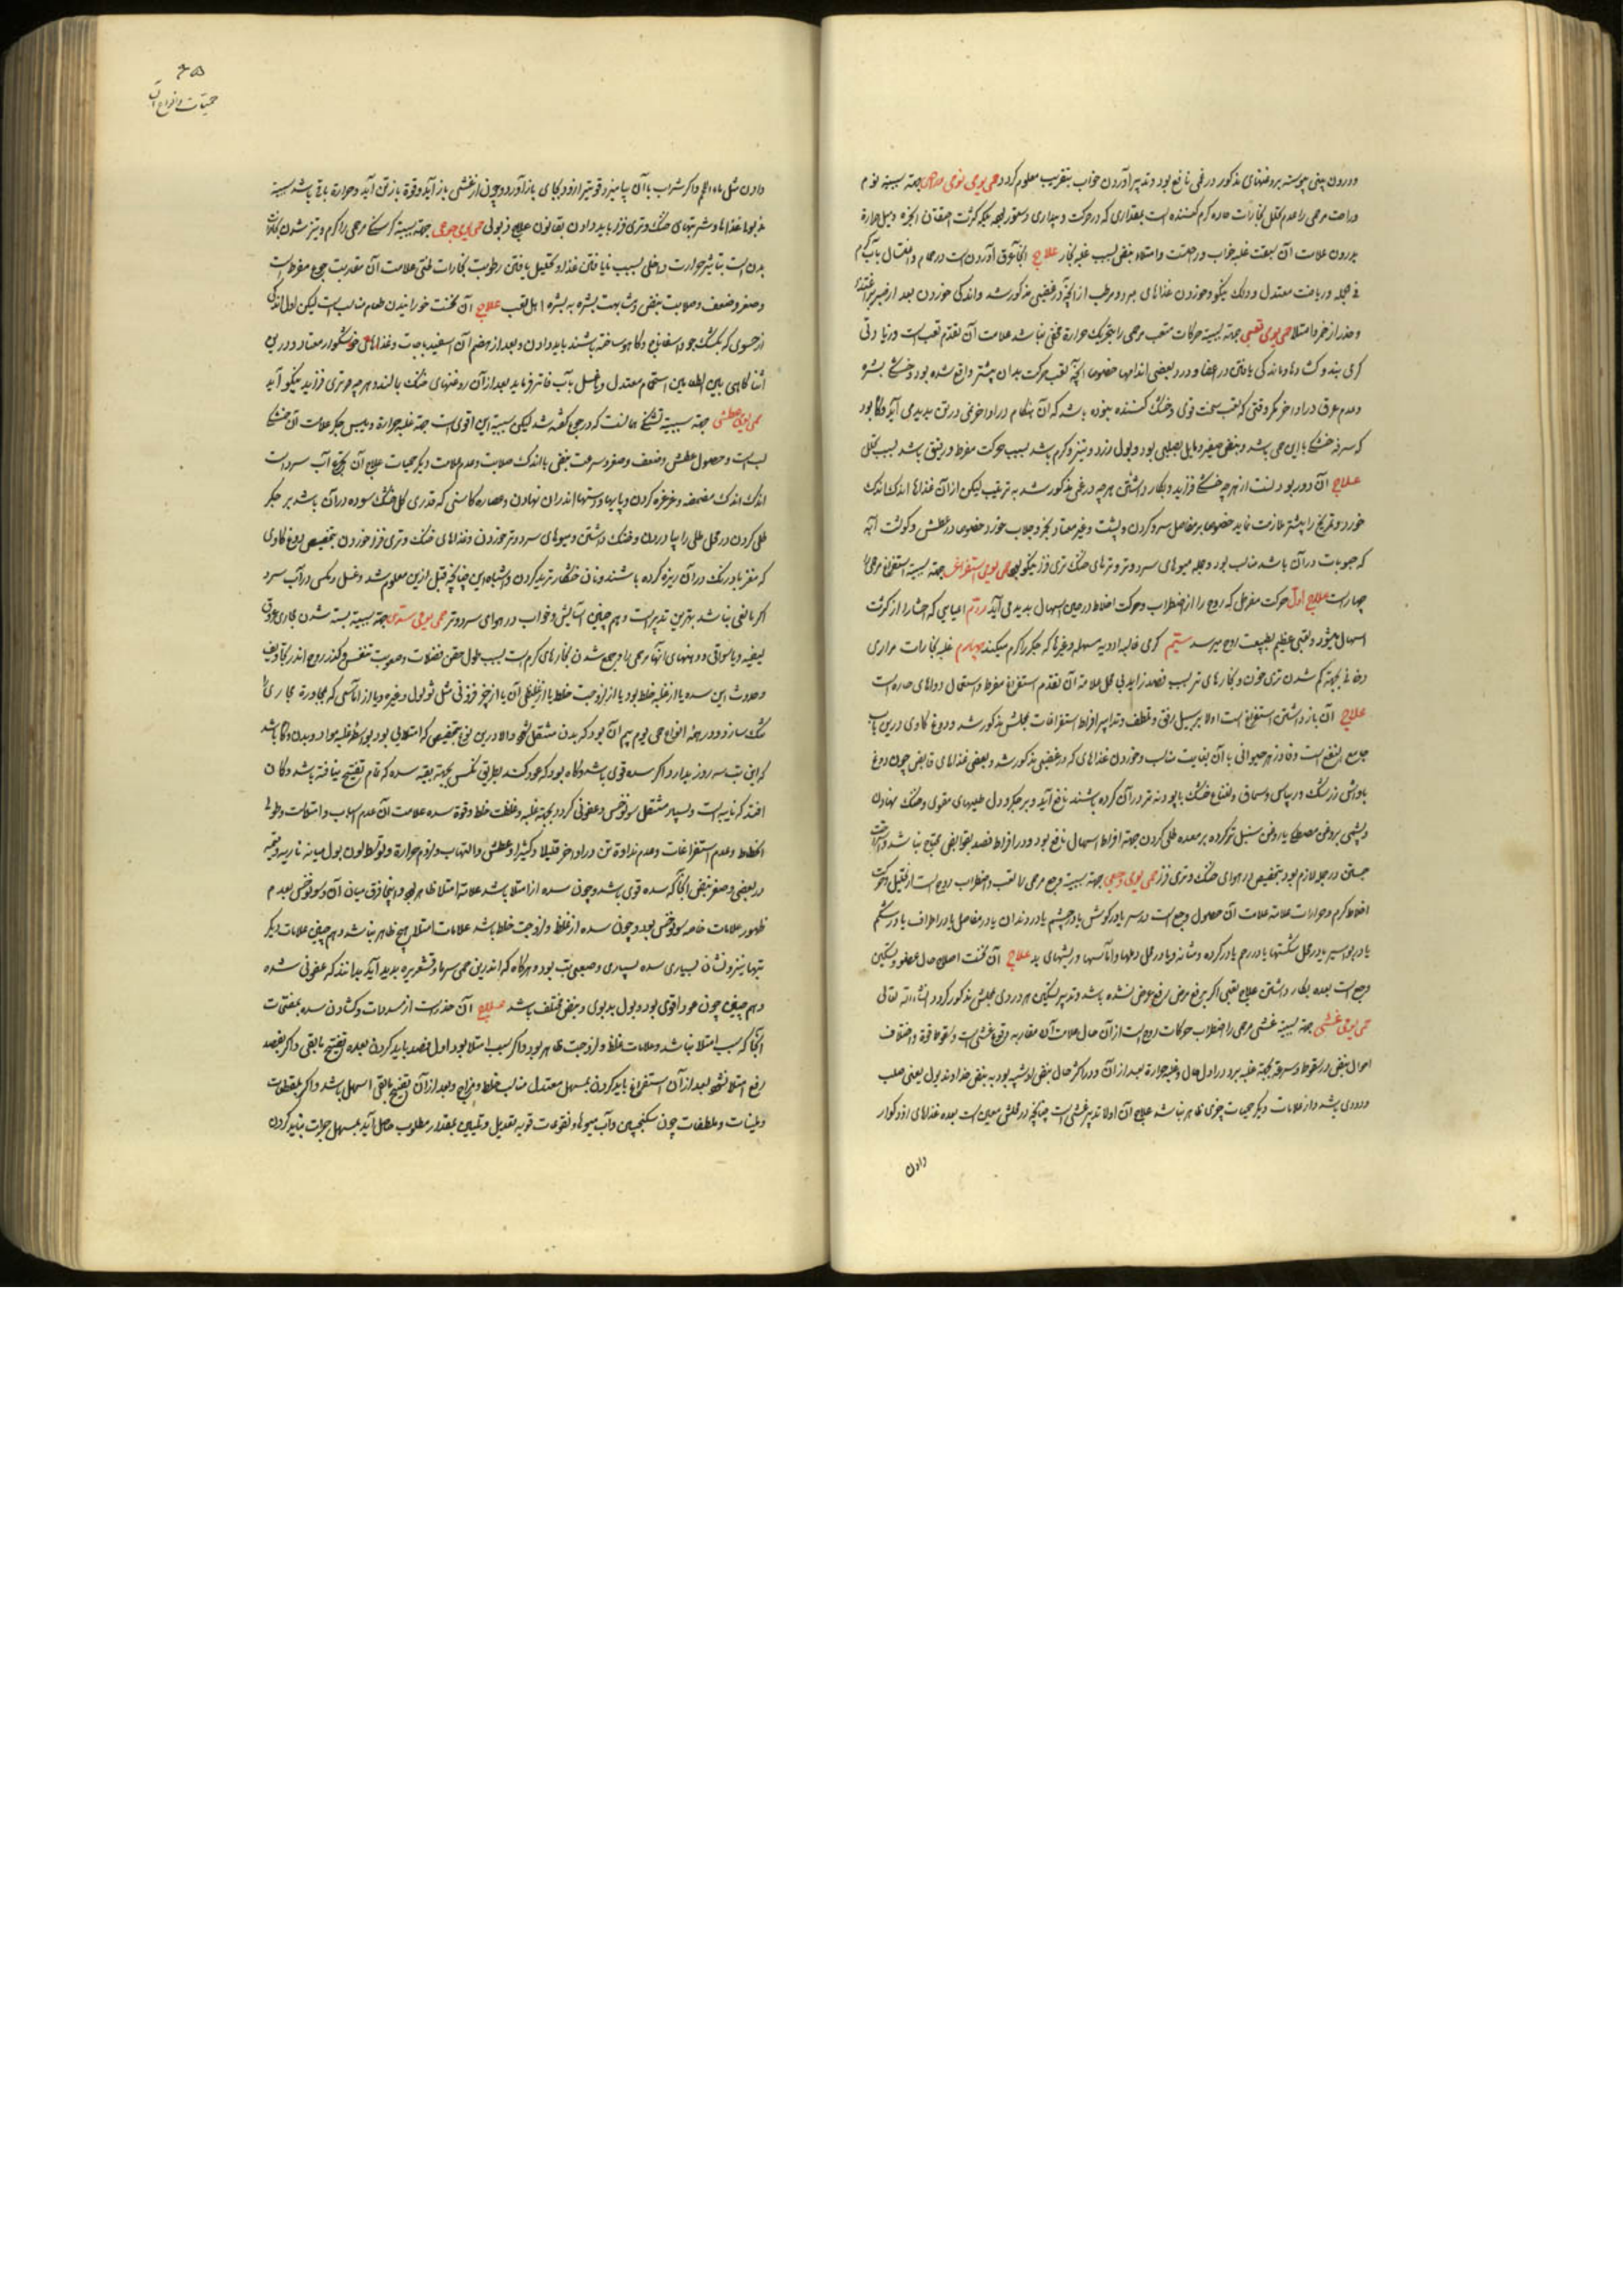 ودرون بینی پیوسته بروغنهای مذکور در غمی نافع بود وتدبیر آوردن خواب بتقریب معلوم کردد حمی یومی نومی جهة سببیة نوم
وراحت مرحمی را عدم تحلل بخارات حاره کرم کننده است بمقداری که در حرکت و بیداری
بیرون علامت آن سبقت غلبه خواب وراحت وامتلاء نبض بسبب غلبه بخار علاج آن عرق آوردنست در حمام واغتسال بآب کرم
فی الجمله وریاضت معتدل ودلک نیکو وخوردن غذاهای مبرد ومرطب از آنچه در غضبی مذکور شد واندکی خوردن بعد از
وحذر از خمر وامتلا حمی یومی تعبی جهة سببیة حرکات متعب مرحمی را بتحریک حرارة مخفی نباشد علامت آن تقدم تعب است وزیادتی
کرمی بند وکشادها وماندکی یافتن در اعضا ودرد بعضی اندامها خصوصا آنچه تعب حرکت بدان بیشتر واقع شده بود وخشکی بشره
وعدم عرق در اواخر مکر وقتی که تعب سخت قوی وخشک کننده نبوده باشد که آن هنکام در اواخر نمی در تن پدیدمی آید وکاه بود
که سرفه خشک با این حمی باشد ونبض صغیر ومایل بصلبی بود وبول زرد وتیز وکرم باشد بسبب حرکت مفرط ورقیق باشد بسبب تحلل
علاج آن دور بودنست از هرچه خشکی فزاید وبکار داشتن هرچه در غمی مذکور شد به ترتیب لیکن از آن غذاها اندک اندک
خورد وتمریخ را بیشتر ملازمت نماید خصوصا بر مفاصل سر وکردن وپشت وغیر معتاد بخر وجلاب خورد خصوصا در عطش وکوشت آبه
که حبوبات در آن باشد مناسب بود وجمله میوهای سرد وتر وترهای خنک تری فزا نیکو بود حمی یومی استفراغی جهة سببیة استفراغ مرحمی را
چهارست علاج اول حرکت مفرط که روح را از اضطراب وحرکت اخلاط در حین اسهال پدید می آید دوم المیابی که احشا را از کثرت
اسهال میشود وتعبی عظیم بطبیعت روح میرسد سیم کرمی غالبه ادویه مسهله وغیرها که جکر را کرم میکند چهارم غلبه بخارات مراری
دخانی بجهة کم شدن تری خون وبخارهای تر بسبب فصد زاید بی محل علامة آن تقدم استفراغ مفرط واستعمال دواهای حاره است
علاج آن باز داشتن استفراغ است اولا بر سبیل رفق وتلطف وتدابیر افراط استفراغات بمحلش مذکور شد ودوغ کاوی درین باب
جامع النفع است وفادزهر حیوانی با آن بغایت مناسب وخوردن غذاهای که در غضبی مذکور شد وبعضی غذاهای قابض چون دوغ
باداش زرشک وریباس وسماق ونعناع خشک یا پودنه تر در آن کرده باشند نافع آید وبر جکر ودل طلیهای مقوی وخنک نهادن
وپشمی بروغن مصطکی یا روغن سنبل ترکرده بر معده طلی کردن جهة افراط اسهال نافع بود ودر افراط فصد بقوابض محتاج نباشد
جستن در جمله لازم بود بتخصیص در هوای خنک وتری فزا حمی یومی وجعی جهة سببیة وجع مرحمی را تعب واضطراب روح است از تحلیل وحرکت
اخلاط کرم وحرارات علامة علامت آن حصول وجع است در سر یا در کوش یا در چشم یا در دندان یا در مفاصل یا در اطراف یا در شکم
یا در بواسیر یا در محل شکستها یا در رحم یا در کرده ومثانه ویا در محل دملها وآماسها وریشهای بد علاج آن نخست اصلاح حال عضو وتسکین
وجع است بعده بکار داشتن علاج تعبی اکر برفع مرض رفع عرض نشده باشد وتدبیر تسکین هر دردی بمحلش مذکور کردد انشاءالله تعالی
حمی یومی غشی جهة سببیة غشی مرحمی را اضطراب حرکات روح است از آن حال علامت آن مقاربه وقوع غشی است وسقوط قوة واختلاف
احوال نبض در سقوط وسرعة بجهة غلبه برد در اول حال وغلبه حرارة بعد از آن ودر اکثر حال نبض او شبیه بود به نبض خداوند ذبول یعنی صلب
ودودی باشد واز علامات دیکر حمیات چیزی ظاهر نباشد علاج آن اولا تدبیر غشی است چنانچه در محلش معین است بعده غذاهای زود کوار
دادن
حمیات وانواع آن
دادن مثل ماءاللحم واکر شراب با آن بیامیزد قوة تیز از زود بجای باز آورد وچون از غشی باز آید وقوة باز تن آید وحرارة باقی باشد بسبب
ذبول غذاها وشربتهای خنک وتری فزا باید دادن بقانون علاج ذبولی حمی یومی جوعی جهة سببیة کرسنکی مرحمی را کرم وتیز شدن بخارات
بدن است بتاثیر حرارت داخلی بسبب نایافتن غذا وتحلیل یافتن رطوبت بخارات طبی علامت آن سقدیت جوع مفرط است
وصغر وضعف وصلابت نبض ومشابهت بشره به بشره اهل تعب علاج آن نخست خورانیدن طعام مناسب است لیکن اول اندکی
از حسوی که بکشک جو واسفاناخ وکاهو ساخته باشند باید دادن وبعد از هضم آن اسفیدباجات وغذاهای خوشکوار معتاد ودرین
اثنا کاهی بین الطعامین استحمام معتدل وغسل بآب فاتر فرماید بعد از آن روغنهای خنک بمالند وهرچه تری فزاید نیکو آید
حمی یومی عطشی جهة سببیة تشنکی همانست که در جوع کفته شد لیکن سببیة این اقوی است جهة غلبه حرارة ویبس جکر علامت آن خشکی
لب است وحصول عطش وضعف وصغر وسرعت نبض با اندک صلابت وعدم علامت دیکر حمیات علاج آن تجرع آب سرد است
اندک اندک مضمضه وغرغره کردن وپایها ودستها اندر آن نهادن وعصاره کاسنی که قدری کل خشک سوده در آن باشد بر جکر
طلی کردن در محل طلی را بیاوردن وخنک داشتن ومیوهای سرد وتر خوردن وغذاهای خنک وتری فزا خوردن بتخصیص دوغ کاوی
که مغز بادرنک در آن ریزه کرده باشند ونان خشکار ترید کردن واشباه این چنانچه قبل ازین معلوم شد وغسل ومکث در آب سرد
اکر مانعی نباشد بهترین تدبیر است وهم چنین آسایش وخواب در هوای سرد وتر حمی یومی سددی جهة سببیة بسته شدن مجاری عروق
لیفیه ویا سواقی ودهنهای آنها مرحمی را جمع شدن بخارهای کرم است بسبب طول حقن فضلات وصعوبت تنفس وکذر روح اندر تجاویف
وحدوث این سده یا از غلبه خلط بود یا از لزوجت خلط یا از غلیظی آن یا از چیز فزونی مثل ثولول وغیره ویا از آماسی که مجاورة مجاری را
تنک سازد ودر همه انواع حمی یوم بیم آن بود که بدن مشتعل شود والا درین نوع بتخصیص که امتلایی بود بواسطه غلبه مواد در بدن وکاه باشد
که این تب سه روز بدارد واکر سده قوی باشد وکاه بود که عود کند بطریق نکس بجهة بقیه سده که تمام تفتیح نیافته باشد وکمان
افتد که نایبه است وبسیار مشتعل سونوخس وعفونی کردد بجهة غلبه وغلظت خلط وقوة سده علامت آن عدم اسباب وامتلاست وطول
انحطاط وعدم استفراغات وعدم نداوة تن در اواخر قلیلا وکثیرا وعطش والتهاب ولزوم حرارة وتوسط لون بول میانه ناریه وتبنیه
در بعضی وصغر نبض آنجا که سده قوی باشد وچون سده از امتلا باشد علامة امتلا ظاهر بود واینجا فرق میان آن وسونوخس بعدم
ظهور علامات خاصه سونوخس بود وچون سده از غلظ ولزوجت خلط باشد علامات امتلا هیچ ظاهر نباشد وهم چنین علامات دیکر
تبها نیز ونشان بسیاری سده بسیاری وصعبی تب بود وهرکاه که اندرین حمی سرما وقشعریره پدید آید بدانند که عفونی شده
وهم چنین چون عود اقوی بود وبول بدبوی ونبض مختلف باشد علاج آن حذر است از مسددات وکشادن سده بمفتحات
آنجا که سبب امتلا نباشد وعلامات غلظ ولزوجت ظاهر بود واکر سبب امتلا بود اول فصد باید کردن بعده تفتیح باقی واکر بفصد
رفع امتلا نشود بعد از آن استفراغ باید کردن بمسهل معتدل مناسب خلط ومزاج وبعد از آن تفتیح باقی اسهل باشد واکر بمقطعات
وملینات وملطفات چون سکنجبین وآب میوها ونقوعات قویه تعدیل وتلیین بمقدار مطلوب حاصل آید بمسهل جرات نباید کردن